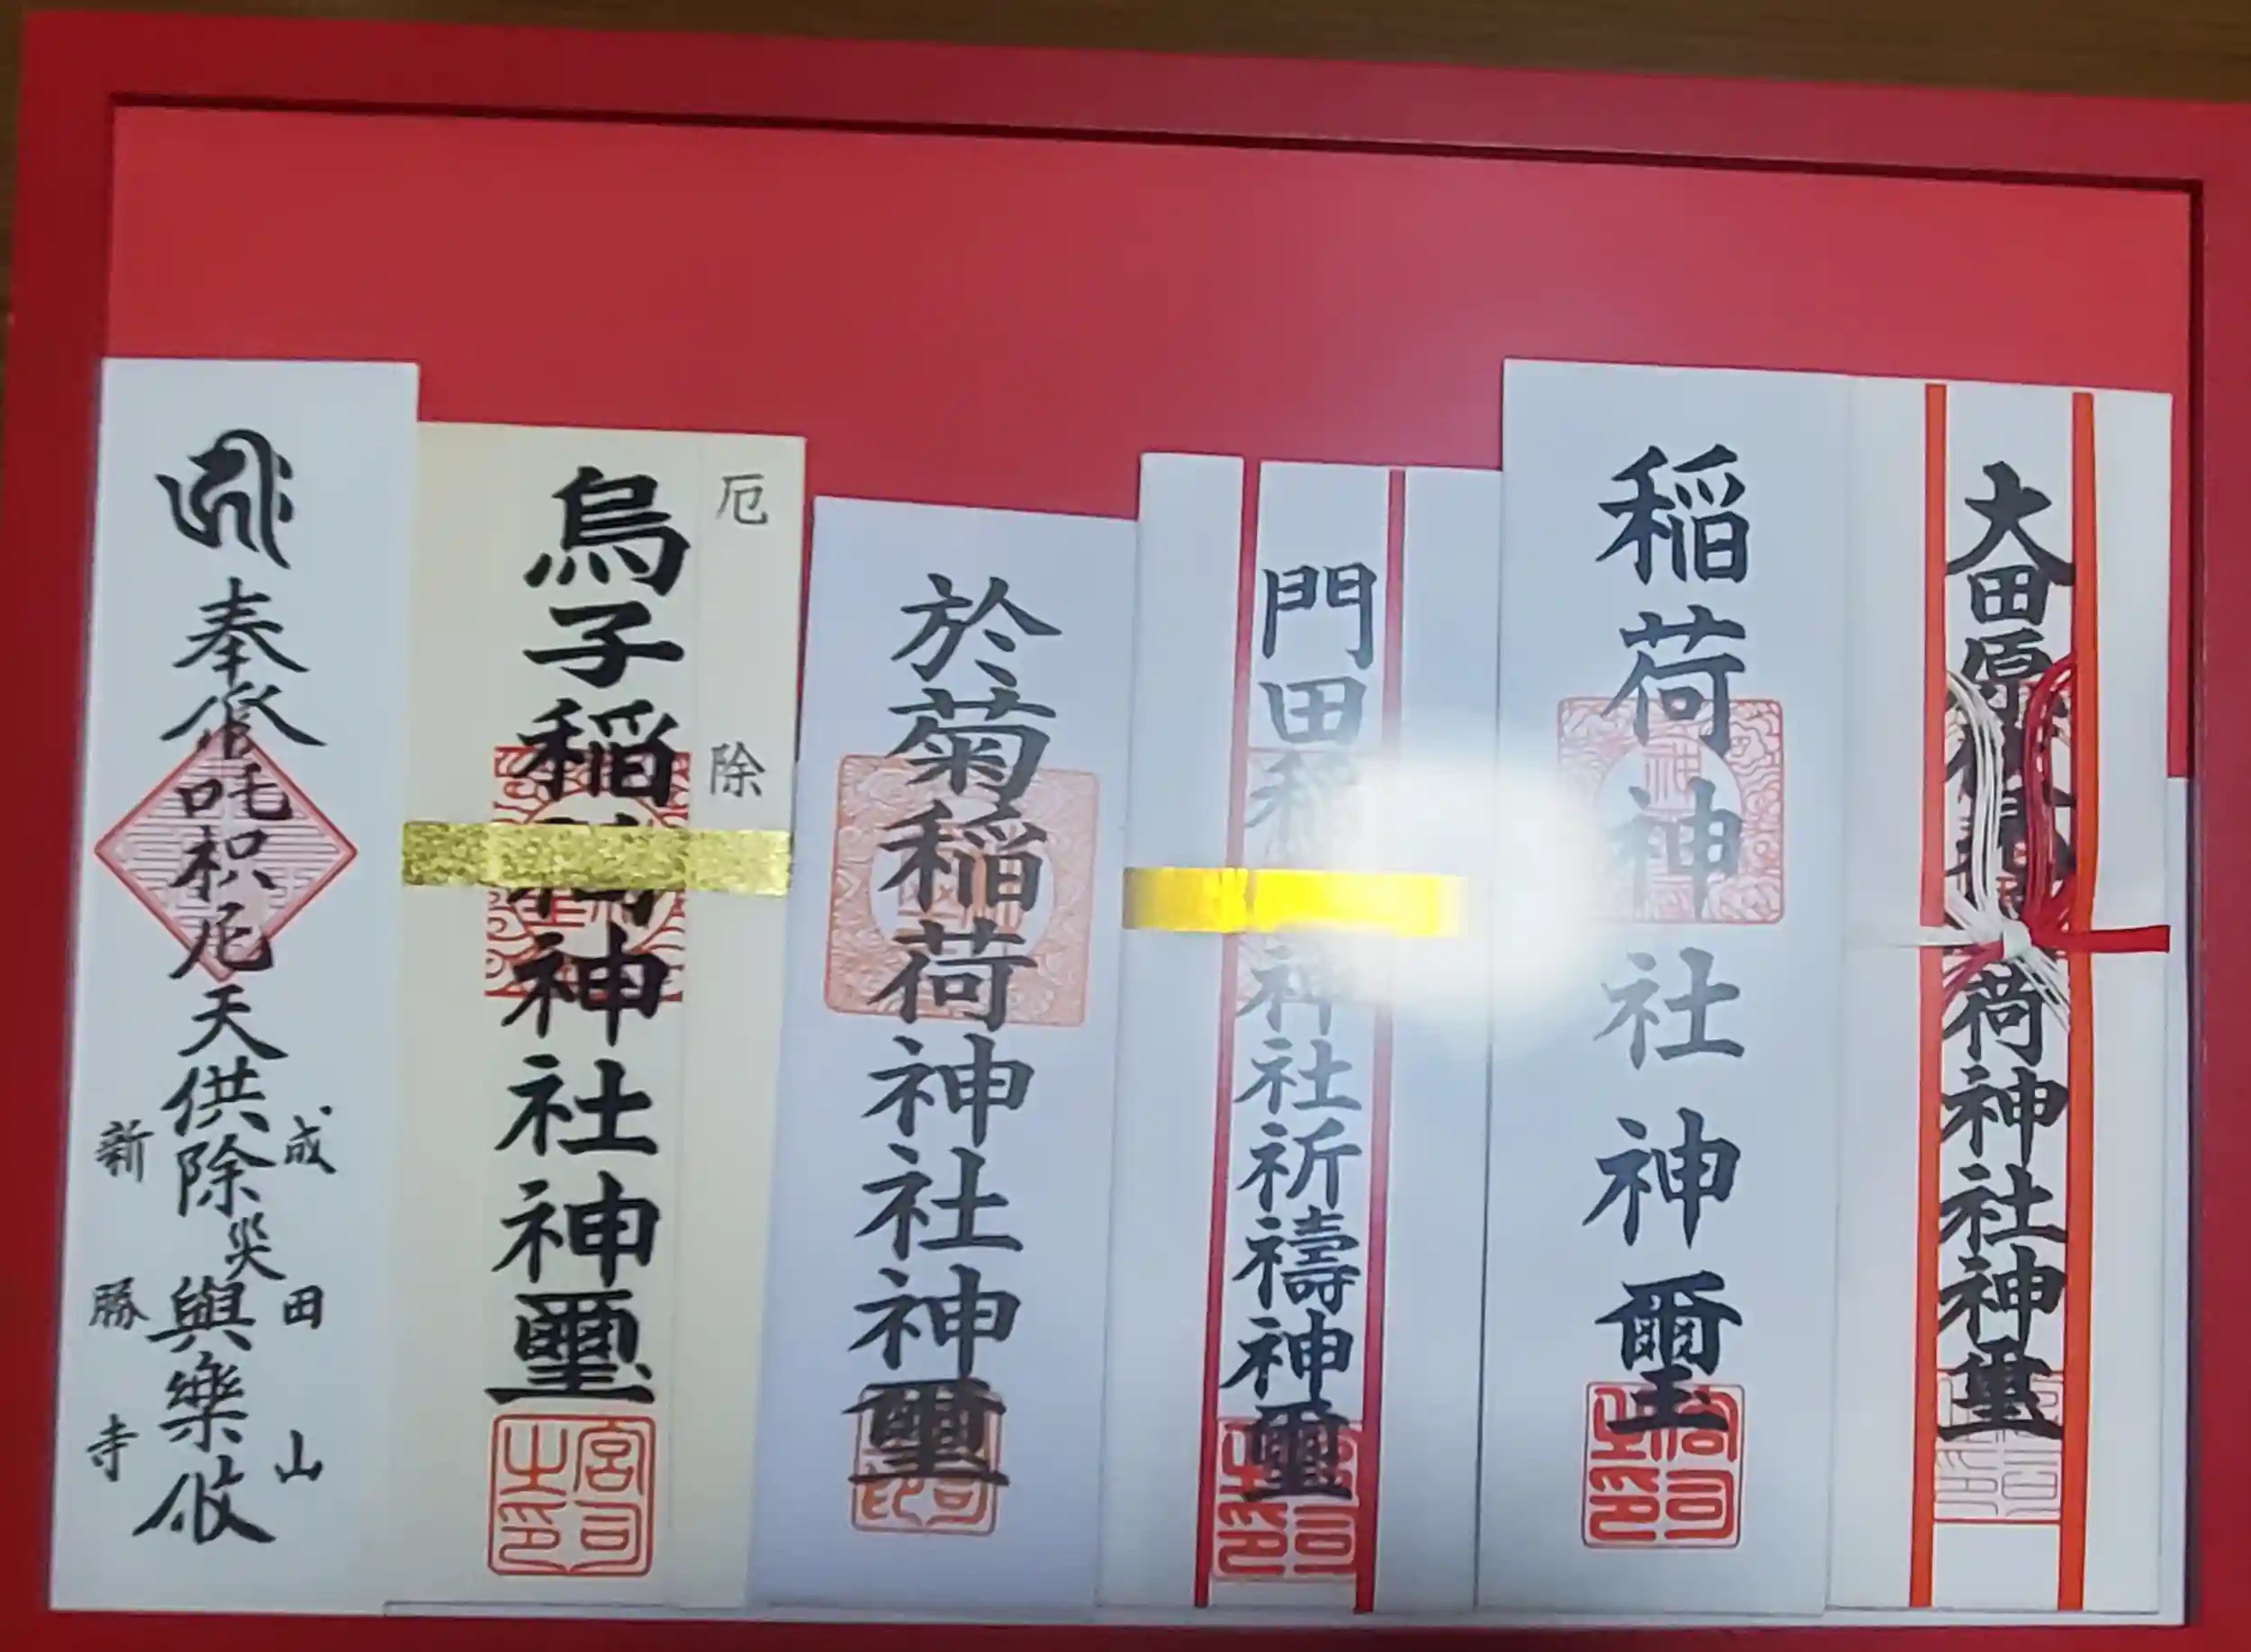 大田原
荷神社神璽
稲荷神社神璽
宮司之印
門田稲
神社祈禱神璽
宮司之印
於菊稲荷神社神璽
厄除
烏子稲荷神社神璽
宮司之印
成田山
奉修吒枳尼天供除災與樂攸
新勝寺